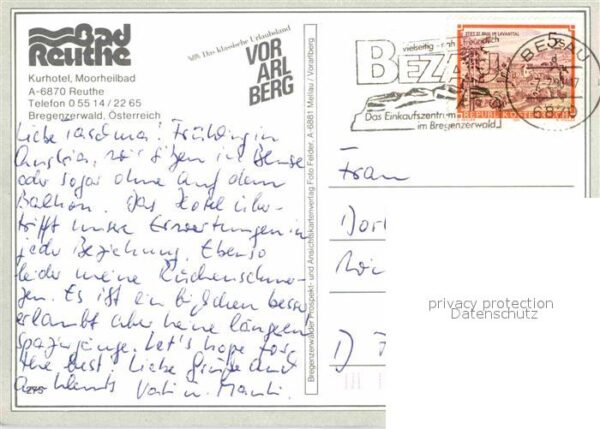 Bad
Reuthe
Kurhotel, Moorheilbad
A-6870 Reuthe
Telefon 0 55 14 / 22 65
Bregenzerwald, Österreich
Das klassische Urlaubsland
VOR
ARL
BERG
Liebe Frühling in
Austria, wir sitzen in Bluse
oder sogar ohne auf dem
Balkon. Das Hotel über-
trifft unsere Erwartungen in
jeder Beziehung. Ebenso
leider meine Rückenschmer-
zen. Es ist ein bißchen besser
erlaubt aber keine längeren
Spaziergänge. Let's hope for
the best. Liebe Grüße und
u.
275
Bregenzerwälder Prospekt- und Ansichtskartenverlag Foto Felder, A-6881 Mellau / Vorarlberg
STIFT ST. PAUL IM LAVANTTAL
5
REPUBLIK ÖSTERREICH
vielseitig - nah - freundlich
BEZAU
Das Einkaufszentrum
im Bregenzerwald
BEZAU
6870
Frau
D
privacy protection
Datenschutz